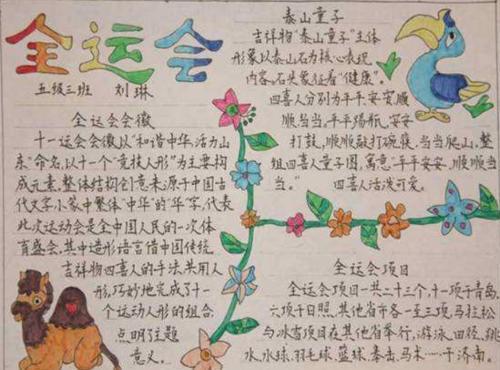 全运会
五级三班 刘琳
全运会会徽
十一运会会徽以“和谐中华,活力山
东”命名,以十一个“竞技人形”为主要构
成元素,整体结构创意来源于中国古
代文字小篆中繁体“中华”的“华”字,代表
此次运动会是全中国人民的一次体
育盛会,其中造形语言借中国传统
吉祥物四喜人的手法,共用人
形,巧妙地完成了十一
个运动人形的组合,
点明了主题
意义。
泰山童子
吉祥物“泰山童子”主体
形象以泰山石为核心表现
内容,石头象征着“健康”。
四喜人分别为平平安安,顺
顺当当。平平扬帆,安安
打鼓,顺顺敲打碗碟,当当爬山,整
组四喜人童子图,寓意“平平安安,顺顺当
当。” 四喜人活泼可爱。
全运会项目
全运会项目一共二十三个,十一项于青岛
六项于日照,其他省市各一至三项,马拉松
与冰雪项目在其他省举行,游泳、田径、跳
水、水球、羽毛球、篮球、拳击、马术……于济南。